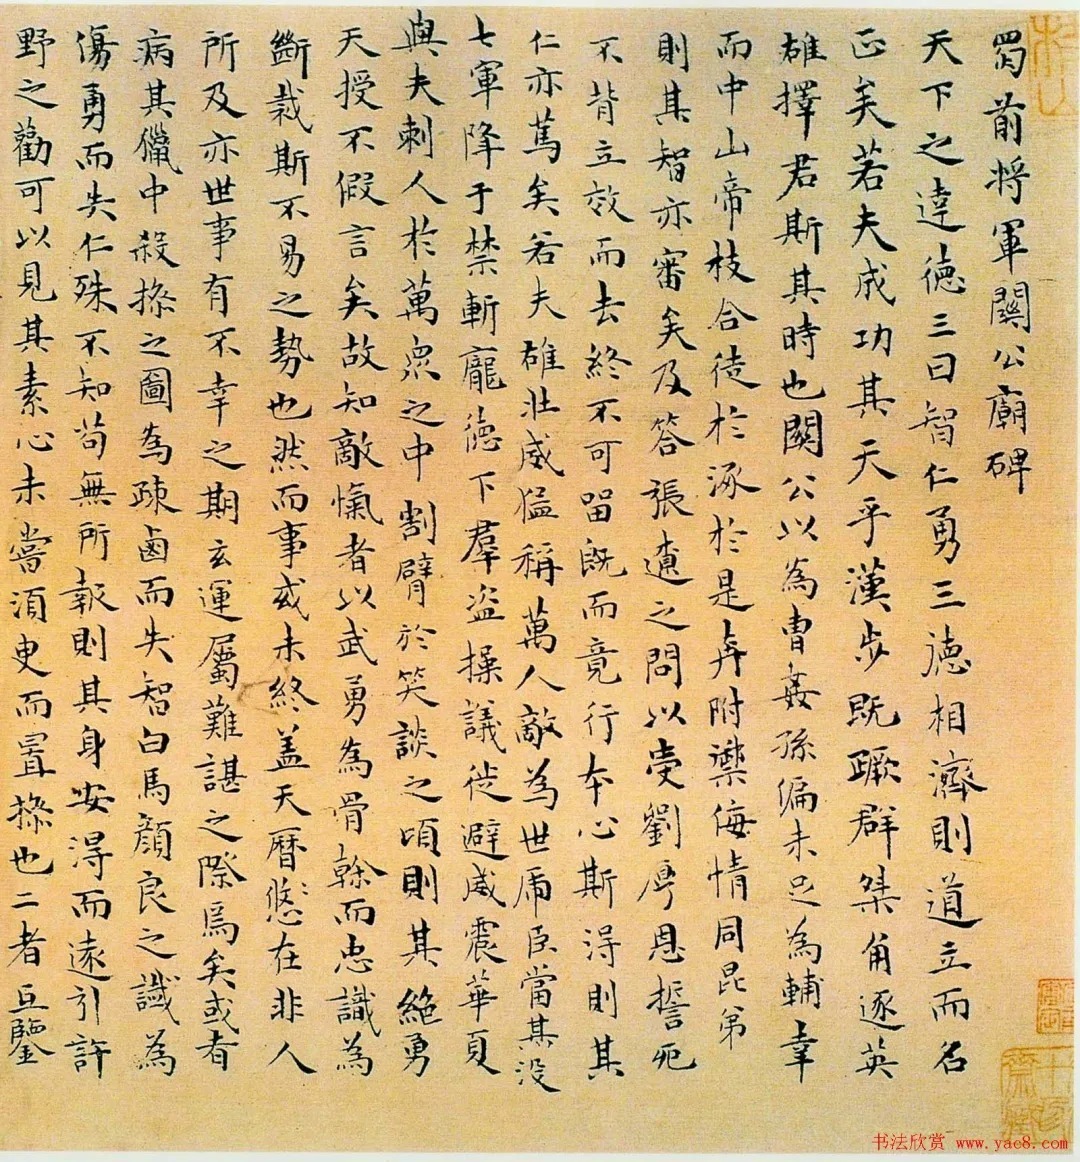 蜀前將軍關公廟碑
天下之達德三曰智仁勇三德相濟則道立而名
正矣若夫成功其天乎漢步既蹶群桀角逐英
雄擇君斯其時也關公以為曹姦孫偏未足為輔幸
而中山帝枝合徒於涿於是奔附禦侮情同昆弟
則其智亦審矣及答張遼之問以受劉厚恩誓死
不背立效而去終不可留既而竟行本心斯得則其
仁亦篤矣若夫雄壯威猛稱萬人敵為世虎臣當其沒
七軍降于禁斬龐德下羣盜操議徙避威震華夏
與夫刺人於萬眾之中割臂於笑談之頃則其絕勇
天授不假言矣故知敵愾者以武勇為骨幹而忠識為
斷裁斯不易之勢也然而事或未終盖天曆悠悠在非人
所及亦世事有不幸之期玄運屬難諶之際焉矣或者
病其獵中殺操之圖為疎鹵而失智白馬顏良之誡為
傷勇而失仁殊不知苟無所報則其身安得而遠引許
野之勸可以見其素心未嘗須臾而置操也二者互鑒
書法欣赏 www.yac8.com